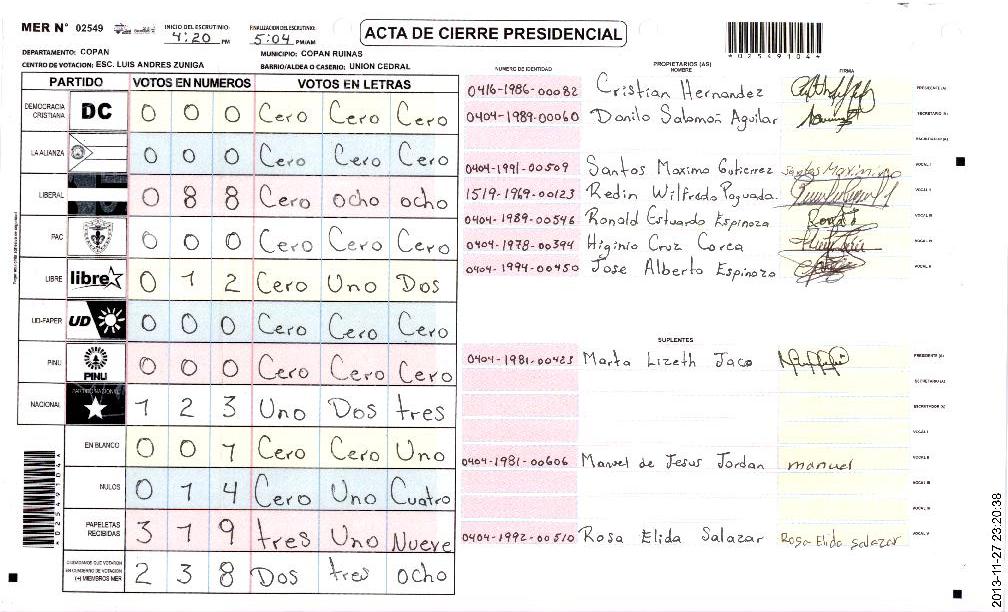 MER Nº 02549
INICIO DEL ESCRUTINIO: 4:20 PM
FINALIZACION DEL ESCRUTINIO: 5:04 PM/AM
ACTA DE CIERRE PRESIDENCIAL
*02549104*
DEPARTAMENTO: COPAN
MUNICIPIO: COPAN RUINAS
CENTRO DE VOTACION: ESC. LUIS ANDRES ZUNIGA
BARRIO/ALDEA O CASERIO: UNION CEDRAL
PARTIDO VOTOS EN NUMEROS VOTOS EN LETRAS
DEMOCRACIA CRISTIANA DC 0 0 0 Cero Cero Cero
LA ALIANZA 0 0 0 Cero Cero Cero
LIBERAL 0 8 8 Cero ocho ocho
PAC 0 0 0 Cero Cero Cero
LIBRE libre 0 1 2 Cero Uno Dos
UD-FAPER UD 0 0 0 Cero Cero Cero
PINU PINU 0 0 0 Cero Cero Cero
NACIONAL 1 2 3 Uno Dos tres
EN BLANCO 0 0 1 Cero Cero Uno
NULOS 0 1 4 Cero Uno Cuatro
PAPELETAS RECIBIDAS 3 1 9 tres Uno Nueve
CIUDADANOS QUE VOTARON EN CUADERNO DE VOTACION (+) MIEMBROS MER 2 3 8 Dos tres ocho
*02549104*
NUMERO DE IDENTIDAD PROPIETARIOS (AS) NOMBRE FIRMA
0416-1986-00082 Cristian Hernandez PRESIDENTE (A)
0404-1989-00060 Danilo Salomon Aguilar SECRETARIO (A)
ESCRUTADOR (A)
0404-1991-00509 Santos Maximo Gutierrez Santos Maximino VOCAL I
1519-1969-00123 Redin Wilfredo Poguada VOCAL II
0404-1989-00546 Ronald Estuardo Espinoza VOCAL III
0404-1978-00394 Higinio Cruz Corea VOCAL IV
0404-1994-00450 Jose Alberto Espinozo VOCAL V
SUPLENTES
0404-1981-00423 Marta Lizeth Jaco PRESIDENTE (A)
SECRETARIO (A)
ESCRUTADOR (A)
VOCAL I
0404-1981-00606 Manuel de Jesus Jordan manuel VOCAL II
VOCAL III
VOCAL IV
0404-1992-00510 Rosa Elida Salazar Rosa Elida salazar VOCAL V
2013-11-27 23:20:38